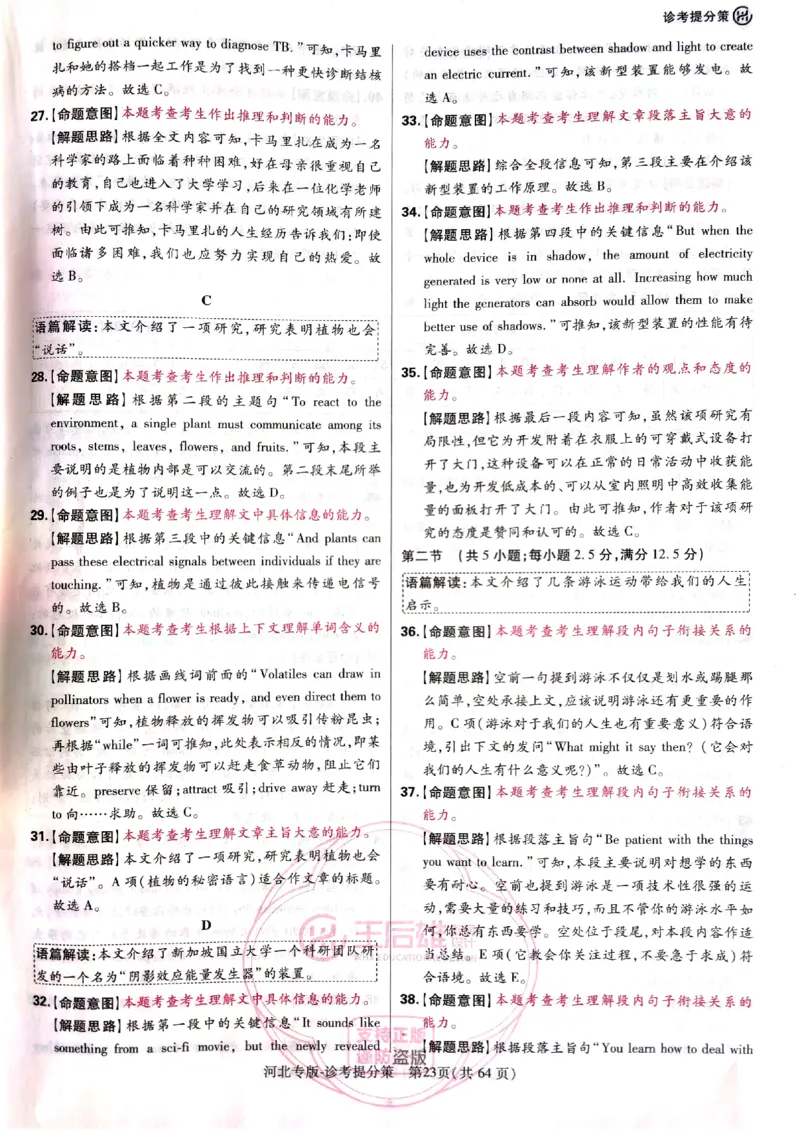 诊考提分策
to figure out a quicker way to diagnose TB.”可知,卡马里
扎和她的搭档一起工作是为了找到一种更快诊断结核
病的方法。故选 C。
27.【命题意图】本题考查考生作出推理和判断的能力。
【解题思路】根据全文内容可知,卡马里扎在成为一名
科学家的路上面临着种种困难,好在母亲很重视自己
的教育,自己也进入了大学学习,后来在一位化学老师
的引领下成为一名科学家并在自己的研究领域有所建
树。由此可推知,卡马里扎的人生经历告诉我们:即使
面临诸多困难,我们也应努力实现自己的热爱。故
选 B。
C
语篇解读:本文介绍了一项研究,研究表明植物也会
“说话”。
28.【命题意图】本题考查考生作出推理和判断的能力。
【解题思路】根据第二段的主题句“To react to the
environment, a single plant must communicate among its
roots, stems, leaves, flowers, and fruits.”可知,本段主
要说明的是植物内部是可以交流的。第二段末尾所举
的例子也是为了说明这一点。故选 D。
29.【命题意图】本题考查考生理解文中具体信息的能力。
【解题思路】根据第三段中的关键信息“And plants can
pass these electrical signals between individuals if they are
touching.”可知,植物是通过彼此接触来传递电信号
的。故选 B。
30.【命题意图】本题考查考生根据上下文理解单词含义的
能力。
【解题思路】根据画线词前面的“Volatiles can draw in
pollinators when a flower is ready, and even direct them to
flowers”可知,植物释放的挥发物可以吸引传粉昆虫;
再根据“while”一词可推知,此处表示相反的情况,即某
些由叶子释放的挥发物可以赶走食草动物,阻止它们
靠近。preserve 保留;attract 吸引;drive away 赶走;turn
to 向……求助。故选 C。
31.【命题意图】本题考查考生理解文章主旨大意的能力。
【解题思路】本文介绍了一项研究,研究表明植物也会
“说话”。A 项(植物的秘密语言)适合作文章的标题。
故选 A。
D
语篇解读:本文介绍了新加坡国立大学一个科研团队研
发的一个名为“阴影效应能量发生器”的装置。
32.【命题意图】本题考查考生理解文中具体信息的能力。
【解题思路】根据第一段中的关键信息“It sounds like
something from a sci-fi movie, but the newly revealed
device uses the contrast between shadow and light to create
an electric current.”可知,该新型装置能够发电。故
选 A。
33.【命题意图】本题考查考生理解文章段落主旨大意的
能力。
【解题思路】综合全段信息可知,第三段主要在介绍该
新型装置的工作原理。故选 B。
34.【命题意图】本题考查考生作出推理和判断的能力。
【解题思路】根据第四段中的关键信息“But when the
whole device is in shadow, the amount of electricity
generated is very low or none at all. Increasing how much
light the generators can absorb would allow them to make
better use of shadows.”可推知,该新型装置的性能有待
完善。故选 D。
35.【命题意图】本题考查考生理解作者的观点和态度的
能力。
【解题思路】根据最后一段内容可知,虽然该项研究有
局限性,但它为开发附着在衣服上的可穿戴式设备打
开了大门,这种设备可以在正常的日常活动中收获能
量,也为开发低成本的、可以从室内照明中高效收集能
量的面板打开了大门。由此可推知,作者对于该项研
究的态度是赞同和认可的。故选 C。
第二节 (共 5 小题;每小题 2.5 分,满分 12.5 分)
语篇解读:本文介绍了几条游泳运动带给我们的人生
启示。
36.【命题意图】本题考查考生理解段内句子衔接关系的
能力。
【解题思路】空前一句提到游泳不仅仅是划水或踢腿那
么简单,空处承接上文,应该说明游泳还有更重要的作
用。C 项(游泳对于我们的人生也有重要意义)符合语
境,引出下文的发问“What might it say then?(它会对
我们的人生有什么意义呢?)”。故选 C。
37.【命题意图】本题考查考生理解段内句子衔接关系的
能力。
【解题思路】根据段落主旨句“Be patient with the things
you want to learn.”可知,本段主要说明对想学的东西
要有耐心。空前也提到游泳是一项技术性很强的运
动,需要大量的练习和技巧,而且不管你的游泳水平如
何,你总有东西要学。空处位于段尾,对本段内容作适
当总结。E 项(它教会你关注过程,不要急于求成)符
合语境。故选 E。
38.【命题意图】本题考查考生理解段内句子衔接关系的
能力。
【解题思路】根据段落主旨句“You learn how to deal with
王后雄
支持正版
谨防盗版
河北专版-诊考提分策 第23页(共 64 页)